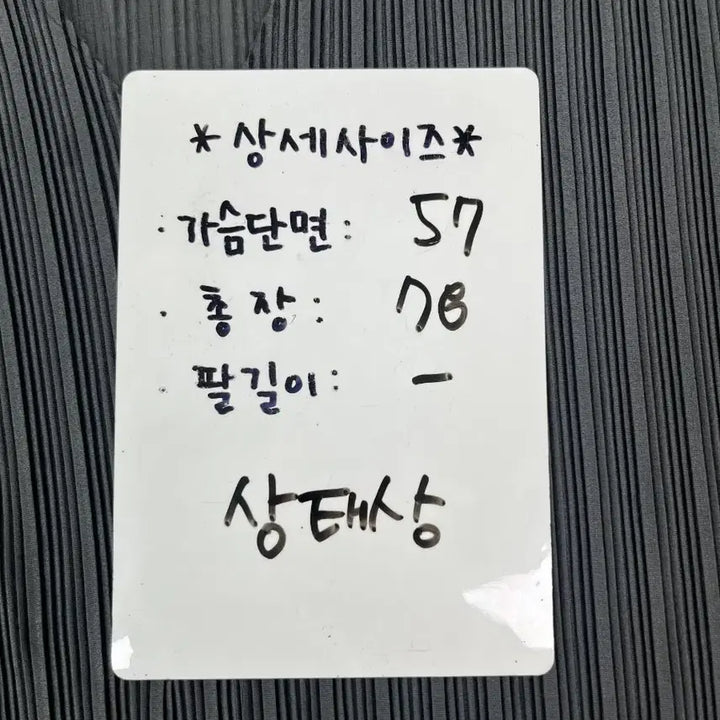 *상세사이즈*
· 가슴단면: 57
· 총장: 78
· 팔길이: -
상태상